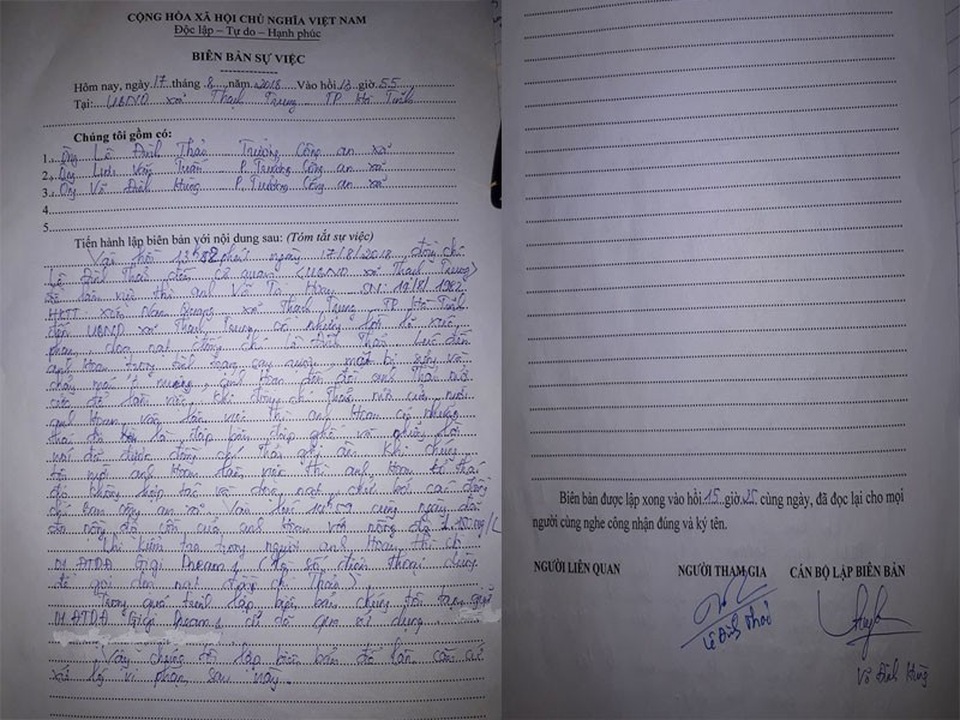 CỘNG HÒA XÃ HỘI CHỦ NGHĨA VIỆT NAM
Độc lập – Tự do – Hạnh phúc
BIÊN BẢN SỰ VIỆC
Hôm nay, ngày 17 tháng 8 năm 2018 Vào hồi 13 giờ 55
Tại: UBND xã Thạch Trung TP Hà Tĩnh
Chúng tôi gồm có:
1. Ông Lê Đình Thảo Trưởng Công an xã
2. Ông Văn Tuấn P. Trưởng Công an xã
3. Ông Võ Đình Hùng P. Trưởng Công an xã
4
5
Tiến hành lập biên bản với nội dung sau: (Tóm tắt sự việc)
Vào hồi phút ngày 17/8/2018 đồng chí
Lê Đình Thảo đến cơ quan (UBND xã Thạch Trung)
để làm việc thì anh Võ Tá Hoan SN: 19/8/1982
HKTT: xóm Nam Quang xã Thạch Trung TP Hà Tĩnh
đến UBND xã Thạch Trung có những lời lẽ xúc
phạm, dọa nạt đồng chí Lê Đình Thảo. Lúc đến
anh Hoan trong tình trạng say rượu,
chảy máu, anh Hoan đến đòi anh Thảo mở
cửa để làm việc, khi đồng chí Thảo mở cửa mời
anh Hoan vào làm việc thì anh Hoan có những
thái độ đập bàn đập ghế và những lời
nói đã được đồng chí Thảo ghi âm. Khi chúng
tôi mời anh Hoan làm việc thì anh Hoan có thái
độ không hợp tác và dọa nạt, chửi bới các đồng
chí ban công an xã. Vào lúc 14h59 cùng ngày đã
đo nồng độ cồn của anh Hoan với nồng độ
Khi kiểm tra trong người anh Hoan thì có
01 ATDĐ Gigi Dream 1 (Có số điện thoại dùng
để gọi dọa nạt đồng chí Thảo).
Trong quá trình lập biên bản chúng tôi tạm giữ
01 ATDĐ Gigi Dream 1 cũ đã qua sử dụng
Vậy chúng tôi lập biên bản để làm căn cứ
xử lý vi phạm sau này.
Biên bản được lập xong vào hồi 15 giờ 25 cùng ngày, đã đọc lại cho mọi
người cùng nghe công nhận đúng và ký tên.
NGƯỜI LIÊN QUAN NGƯỜI THAM GIA CÁN BỘ LẬP BIÊN BẢN
Lê Đình Thảo
Võ Đình Hùng